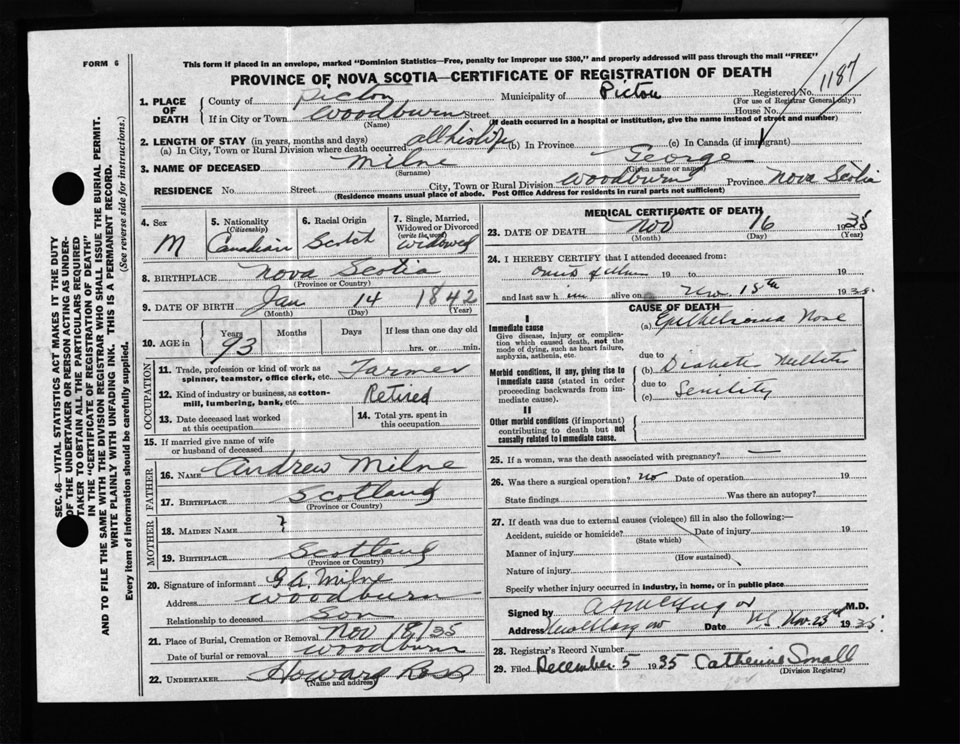 FORM 6
This form if placed in an envelope, marked "Dominion Statistics—Free, penalty for improper use $300," and properly addressed will pass through the mail "FREE"
PROVINCE OF NOVA SCOTIA—CERTIFICATE OF REGISTRATION OF DEATH
1187
1. PLACE OF DEATH
County of Pictou Municipality of Pictou Registered No.
(For use of Registrar General only)
If in City or Town Woodburn Street House No.
(Name) (If death occurred in a hospital or institution, give the name instead of street and number)
2. LENGTH OF STAY (in years, months and days)
(a) In City, Town or Rural Division where death occurred all his life (b) In Province (c) In Canada (if immigrant)
3. NAME OF DECEASED Milne George
(Surname) (Given name or names)
RESIDENCE No. Street City, Town or Rural Division Woodburn Province Nova Scotia
(Residence means usual place of abode. Post Office Address for residents in rural parts not sufficient)
4. Sex M
5. Nationality (Citizenship) Canadian
6. Racial Origin Scotch
7. Single, Married, Widowed or Divorced (write the word) widowed
8. BIRTHPLACE Nova Scotia
(Province or Country)
9. DATE OF BIRTH Jan 14 1842
(Month) (Day) (Year)
10. AGE in Years Months Days If less than one day old
93 hrs. or min.
OCCUPATION
11. Trade, profession or kind of work as spinner, teamster, office clerk, etc. Farmer
12. Kind of industry or business, as cotton-mill, lumbering, bank, etc. Retired
13. Date deceased last worked at this occupation
14. Total yrs. spent in this occupation
15. If married give name of wife or husband of deceased
FATHER
16. NAME Andrew Milne
17. BIRTHPLACE Scotland
(Province or Country)
MOTHER
18. MAIDEN NAME ?
19. BIRTHPLACE Scotland
(Province or Country)
20. Signature of informant G A Milne
Address Woodburn
Relationship to deceased Son
21. Place of Burial, Cremation or Removal Nov 18/35
Date of burial or removal Woodburn
22. UNDERTAKER Howard Ross
(Name and address)
MEDICAL CERTIFICATE OF DEATH
23. DATE OF DEATH Nov 16 1935
(Month) (Day) (Year)
24. I HEREBY CERTIFY that I attended deceased from:
19 to 19
and last saw h im alive on Nov. 15th 1935.
CAUSE OF DEATH
I
Immediate cause
Give disease, injury or complication which caused death, not the mode of dying, such as heart failure, asphyxia, asthenia, etc.
(a) Epithelioma Nose
due to
Morbid conditions, if any, giving rise to immediate cause (stated in order proceeding backwards from immediate cause).
(b) Diabetes Mellitus
due to
(c) Senility
II
Other morbid conditions (if important) contributing to death but not causally related to immediate cause.
25. If a woman, was the death associated with pregnancy? —
26. Was there a surgical operation? no Date of operation 19
State findings Was there an autopsy?
27. If death was due to external causes (violence) fill in also the following:—
Accident, suicide or homicide? Date of injury 19
(State which)
Manner of injury
(How sustained)
Nature of injury
Specify whether injury occurred in industry, in home, or in public place
Signed by M.D.
Address New Glasgow NS Date Nov. 25th 1935
28. Registrar's Record Number
29. Filed December 5 1935 Catherine Small
(Division Registrar)
SEC. 46—VITAL STATISTICS ACT MAKES IT THE DUTY
OF THE UNDERTAKER OR PERSON ACTING AS UNDER-
TAKER TO OBTAIN ALL THE PARTICULARS REQUIRED
IN THE "CERTIFICATE OF REGISTRATION OF DEATH"
AND TO FILE THE SAME WITH THE DIVISION REGISTRAR WHO SHALL ISSUE THE BURIAL PERMIT.
WRITE PLAINLY WITH UNFADING INK. THIS IS A PERMANENT RECORD.
Every item of information should be carefully supplied. (See reverse side for instructions.)